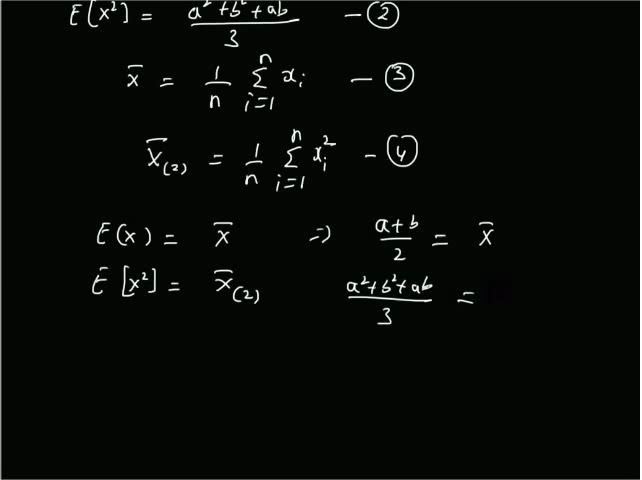 E[x²] = (a²+b²+ab)/3 — ②
x̄ = 1/n Σ_{i=1}^{n} xᵢ — ③
X̄₍₂₎ = 1/n Σ_{i=1}^{n} xᵢ² — ④
E(x) = X̄ ⇒ (a+b)/2 = X̄
E[x²] = X̄₍₂₎ (a²+b²+ab)/3 =